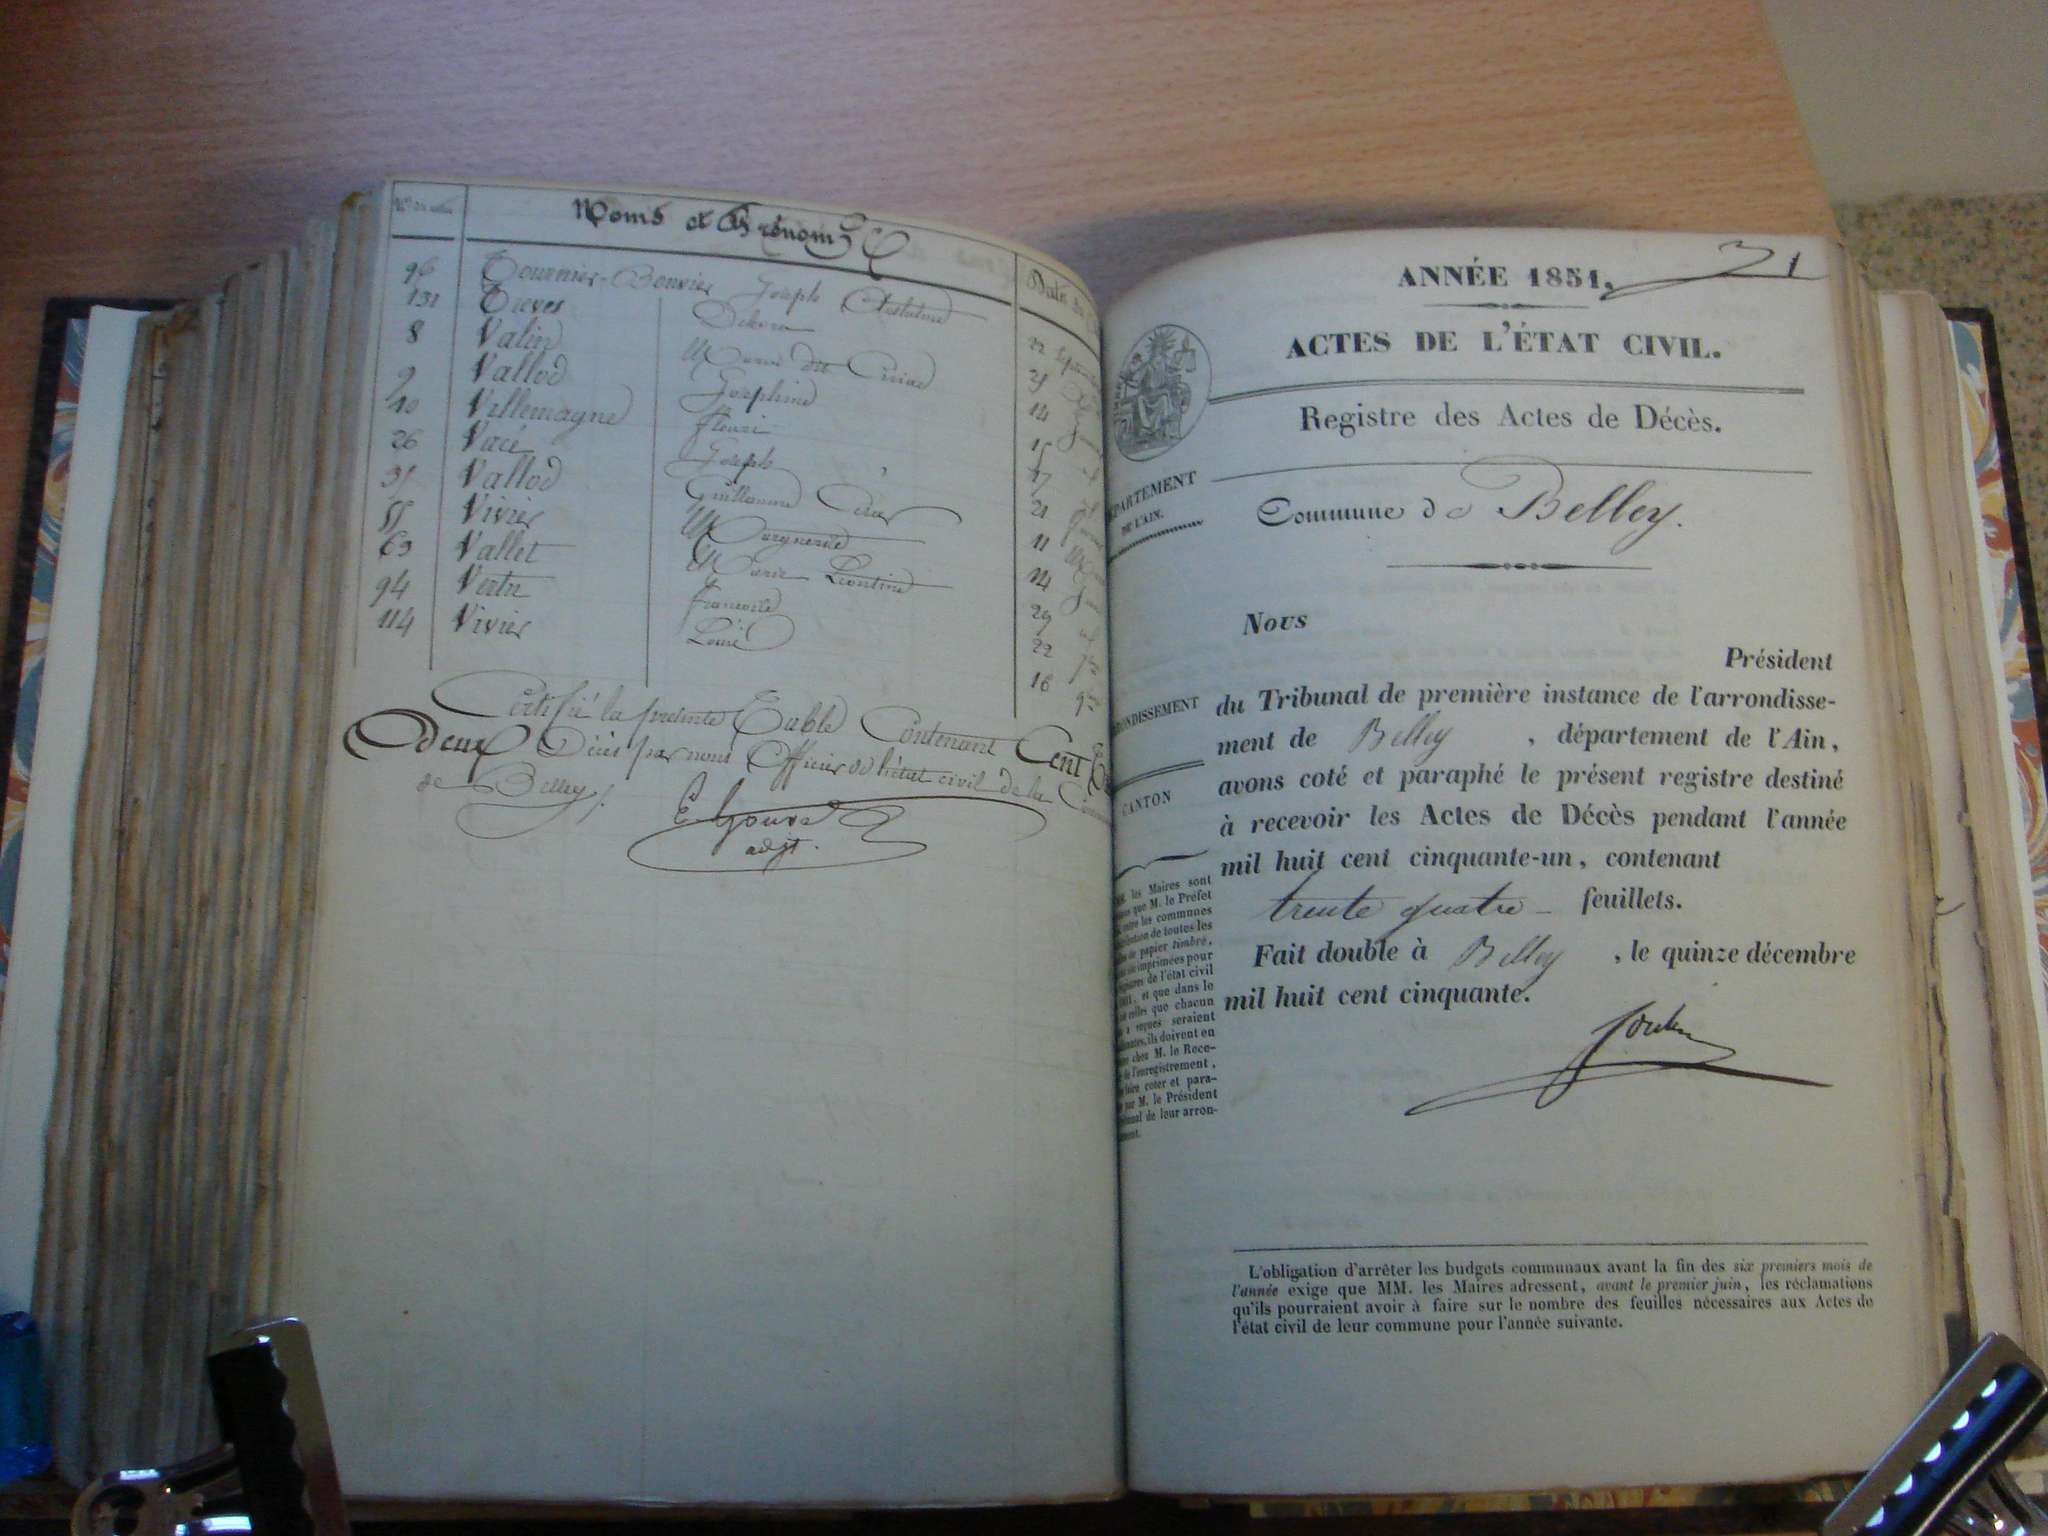 Noms et Prénoms
96 Tournier-Bouvier Joseph 22
131 Treves 31
8 Valin Marie dit 14
9 Vallod Joséphine 15
10 Villemagne fleuri 17
26 Vacé Joseph 21
31 Vallod Guillaume 11
55 Vivier Marguerite 14
69 Vallet Marie Léontine 29
94 Vertu 22
114 Vivier Louis 16
Certifié la présente Table Contenant Cent
deux Décès par nous Officier de l'état civil de la
de Belley
adjt.
ANNÉE 1851.
ACTES DE L'ÉTAT CIVIL.
Registre des Actes de Décès.
PARTEMENT
DE L'AIN.
Commune de Belley.
Nous
Président
du Tribunal de première instance de l'arrondisse-
ONDISSEMENT
ment de Belley , département de l'Ain,
avons coté et paraphé le présent registre destiné
CANTON
à recevoir les Actes de Décès pendant l'année
mil huit cent cinquante-un, contenant
trente quatre feuillets.
Fait double à Belley , le quinze décembre
mil huit cent cinquante.
les Maires sont
que M. le Préfet
entre les communes
de toutes les
de papier timbré,
imprimées pour
de l'état civil
et que dans le
celles que chacun
a reçues seraient
ils doivent en
chez M. le Rece-
de l'enregistrement,
faire coter et para-
par M. le Président
de leur arron-
L'obligation d'arrêter les budgets communaux avant la fin des six premiers mois de
l'année exige que MM. les Maires adressent, avant le premier juin, les réclamations
qu'ils pourraient avoir à faire sur le nombre des feuilles nécessaires aux Actes de
l'état civil de leur commune pour l'année suivante.